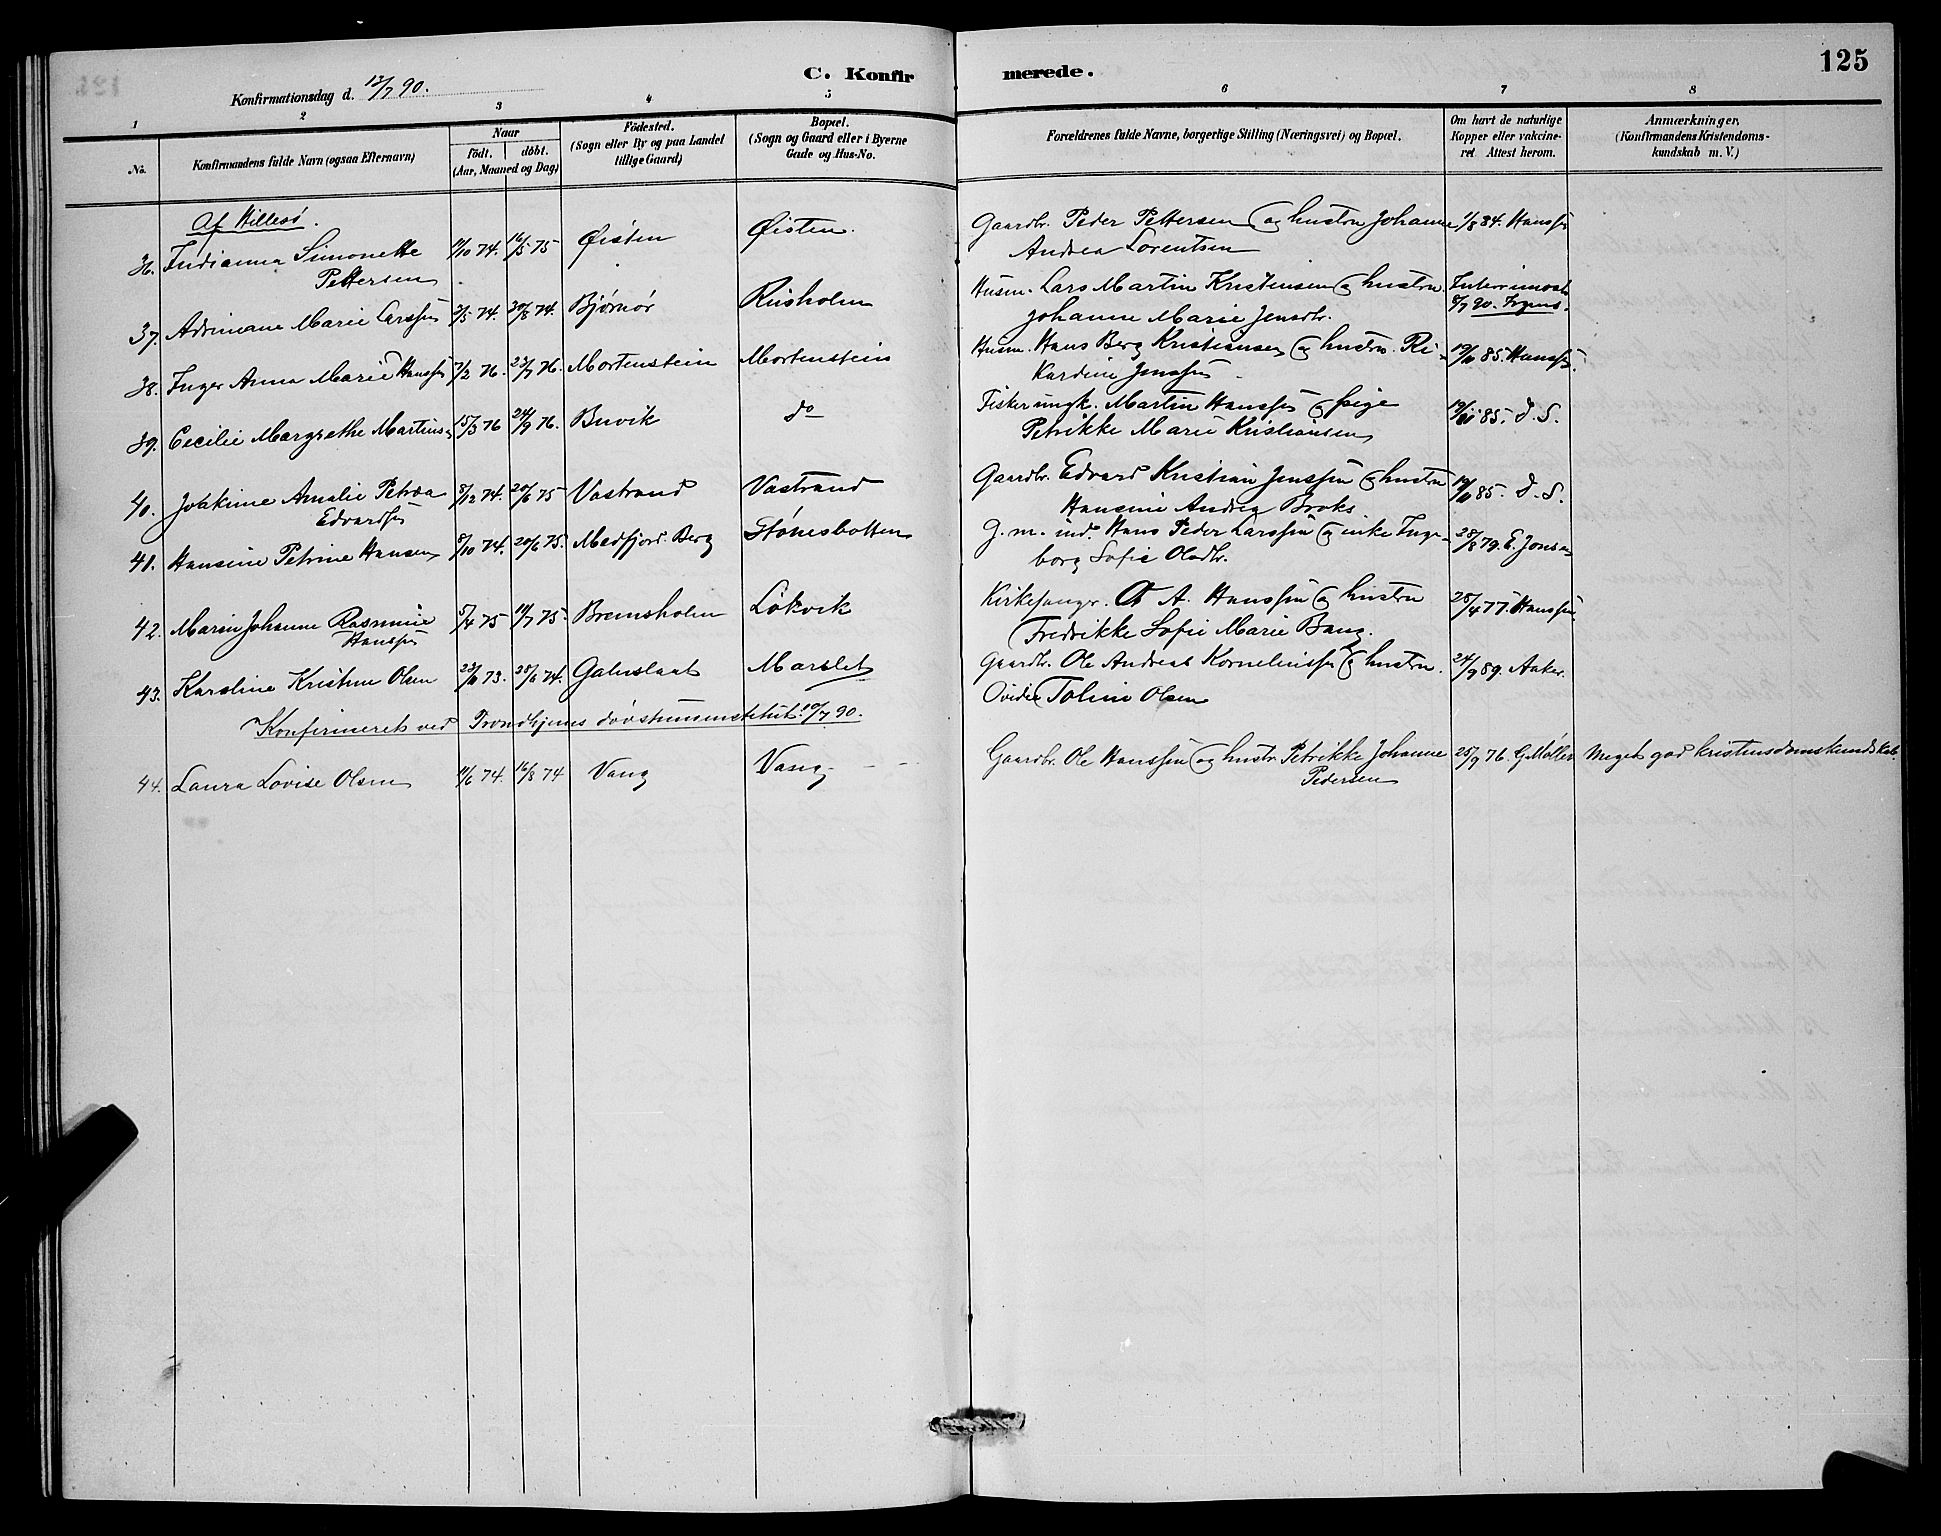 125
C. Konfirmerede.
Konfirmationsdag d. 13/7 90.
1 2 3 4 5 6 7 8
No. Konfirmandens fulde Navn (ogsaa Efternavn) Naar født. døbt. (Aar, Maaned og Dag) Fødested. (Sogn eller By og paa Landet tillige Gaard) Bopæl. (Sogn og Gaard eller i Byerne Gade og Hus-No. Forældrenes fulde Navne, borgerlige Stilling (Næringsvei) og Bopæl. Om havt de naturlige Kopper eller vakcineret Attest herom. Anmærkninger. (Konfirmandens Kristendomskundskab m. V.)
Af Hillesø.
36. Indianna Simonette 11/10 74. 16/5 75 Øisten Øisten. Gaardbr. Peder Pettersen og hustru Johanne 1/8 84. Hanssen
Pettersen Andrea Lorentsen
37. Adrimane Marie Larssen 2/5 74. 30/8 74. Bjørnør Risholm Husm. Lars Martin Kristensen og hustru Interimsat.
Johanne Marie Jensdtr. 8/7 90. Irgens.
38. Inger Anna Marie Hanssen 7/2 76. 23/7 76. Mortenstein Mortenstein Husm. Hans Berg Kristiansen og hustru Ri- 19/10 85. Hanssen.
kardine Jenssen
39. Cecilie Margrethe Martins. 15/3 76 24/9 76. Buvik do Fisker ungk. Martin Hanssen og pige 19/10 85. D. S.
Petrikke Marie Kristiansen
40. Joakime Amalie Petrea 8/12 74. 20/6 75 Vastrand Vastrand Gaardbr. Edvard Kristian Jenssen og hustru 19/10 85. D. S.
Edvardsen Hansine Andrea Broks
41. Hansine Petrine Hansen 8/10 74. 20/6 75. Medfjord. Berg Stønesbotten G. m. ind. Hans Peder Larssen og enke Inge- 28/8 79. E. Jensen
borg Sofie Olsdtr.
42. Maren Johanne Rasmine 5/4 75 11/7 75. Bremsholm Løkvik Kirkesanger. A. Hanssen og hustru 28/4 77. Hanssen.
Hanssen Fredrikke Sofie Marie Bang.
43. Karoline Kristine Olsen 23/11 73. 28/6 74. Marslet Gaardbr. Ole Andreas Korneliussen og hustru 24/9 89. Aaker.
Ovidia Toline Olsen
Konfirmeret ved Trondhjems døvstumeinstitut 10/7 90.
44. Laura Lovise Olsen 11/6 74. 16/8 74 Vang Vang Gaardbr. Ole Hanssen og hustr. Petrikke Johanne 25/9 76. G Møller Meget god kristendomskundskab.
Pedersen